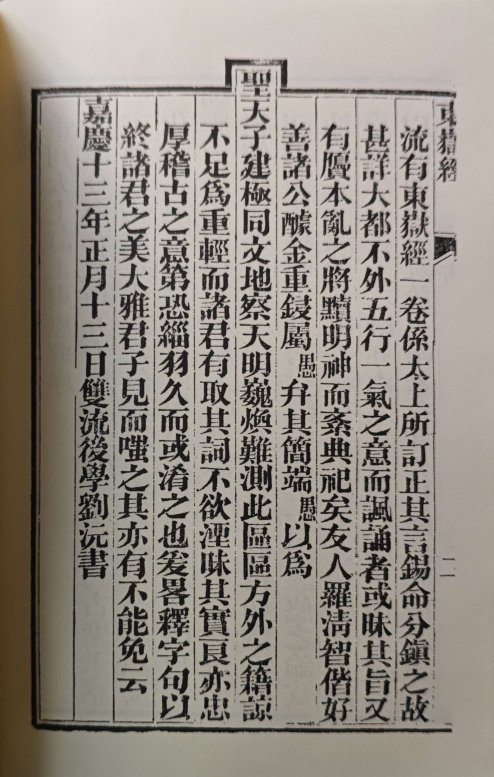 東嶽經
二
流有東嶽經一卷係太上所訂正其言錫命分鎮之故
甚詳大都不外五行一氣之意而諷誦者或昧其旨又
有贗本亂之將黷明神而紊典祀矣友人羅淸智偕好
善諸公醵金重鋟屬愚弁其簡端愚以爲
聖天子建極同文地察天明巍煥難測此區區方外之籍諒
不足爲重輕而諸君有取其詞不欲湮昧其實良亦忠
厚稽古之意第恐緇羽久而或淆之也爰畧釋字句以
終諸君之美大雅君子見而嗤之其亦有不能免云
嘉慶十三年正月十三日雙流後學劉沅書